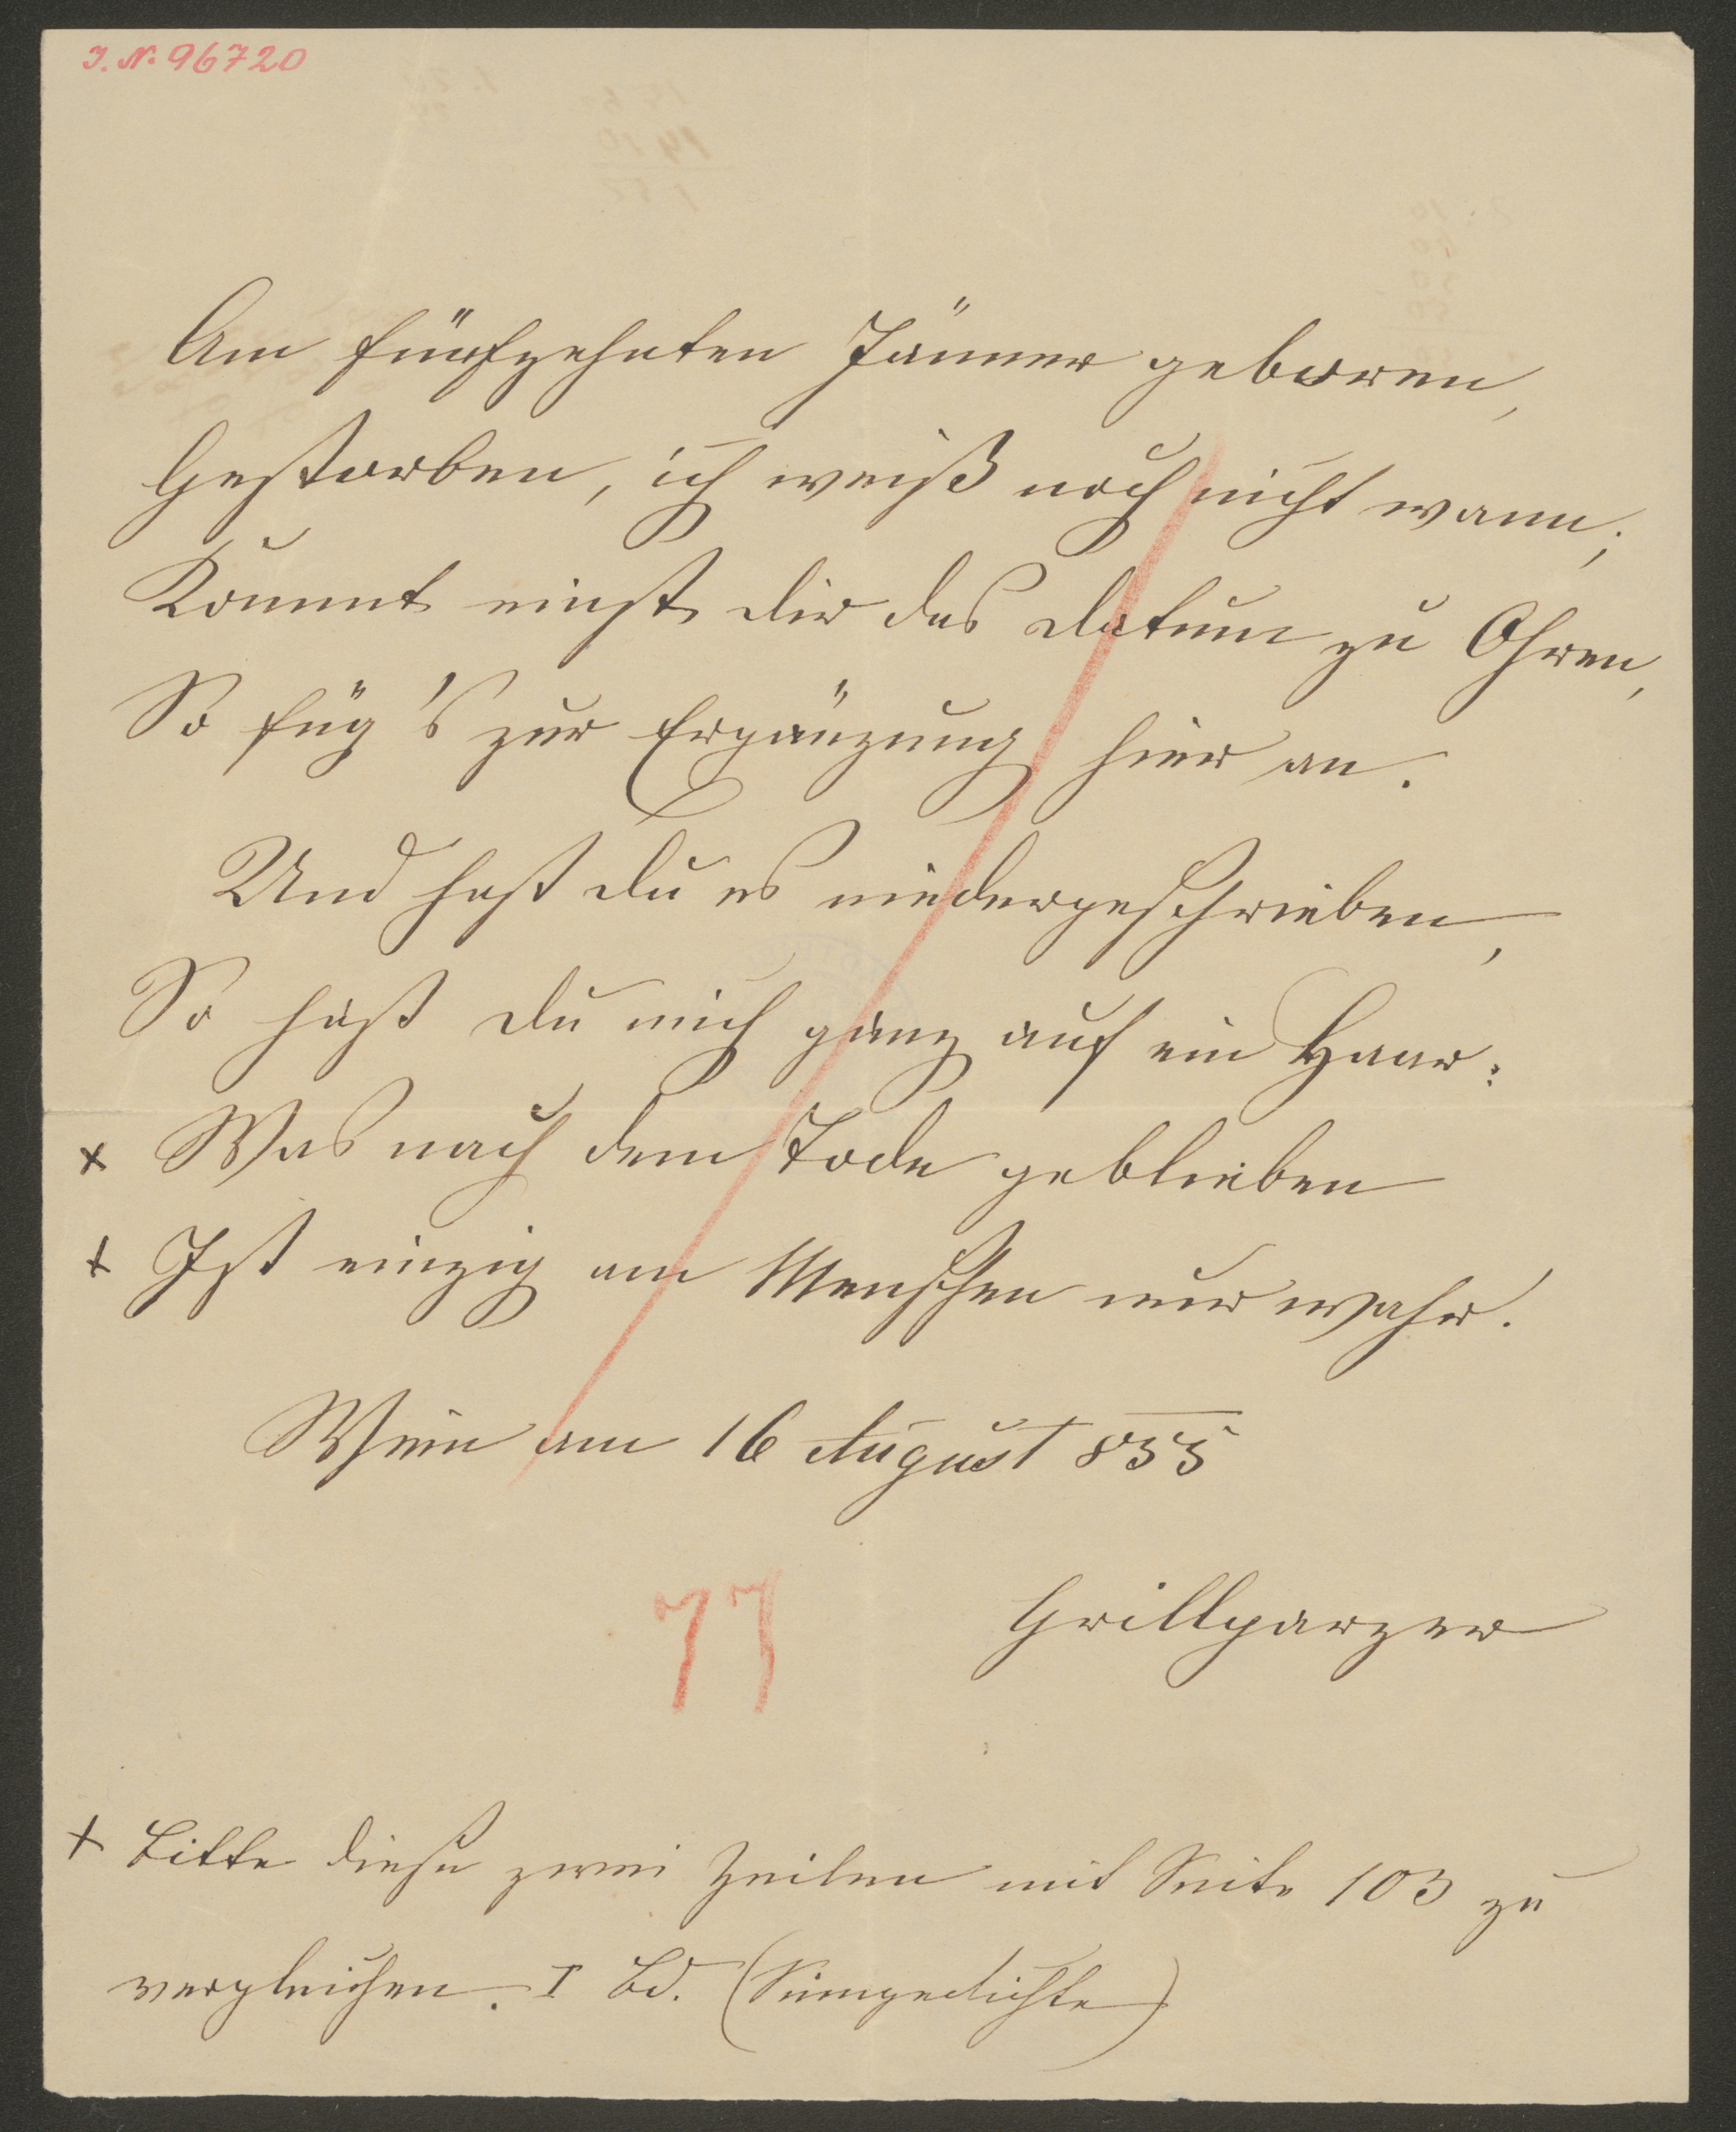 J. N. 96720
Am fünfzehnten Jänner geboren,
Gestorben, ich weiß noch nicht wann;
Kommt einst dir das Datum zu Ohren,
So füg's zur Ergänzung hier an.
Und hast du es niedergeschrieben,
So hast du mich ganz auf ein Haar:
x Was nach dem Tode geblieben
+ Ist einzig am Menschen nur wahr.
Wien am 16 August 855
Grillparzer
77
+ Bitte diese zwei Zeilen mit Seite 103 zu
vergleichen. I Bd. (Sinngedichte)